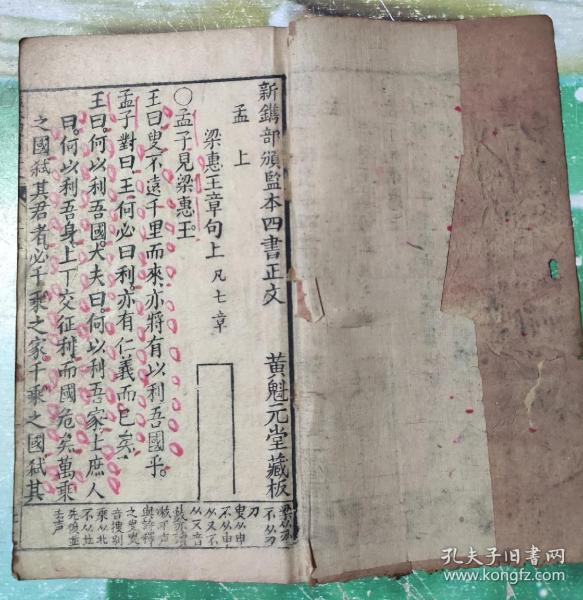 新鐫部頒監本四書正文　黄魁元堂藏板
孟上
梁惠王章句上　凡七章
○孟子見梁惠王。
王曰叟不遠千里而來。亦將有以利吾國乎。
孟子對曰。王何必曰利。亦有仁義而已矣。
王曰。何以利吾國。大夫曰。何以利吾家。士庶人
曰。何以利吾身。上下交征利。而國危矣。萬乘
之國。弒其君者。必千乘之家。千乘之國。弒其
不从刃
刀
叟从申
不从申
从又不
从又音
孔夫子旧书网
www.kongfz.com